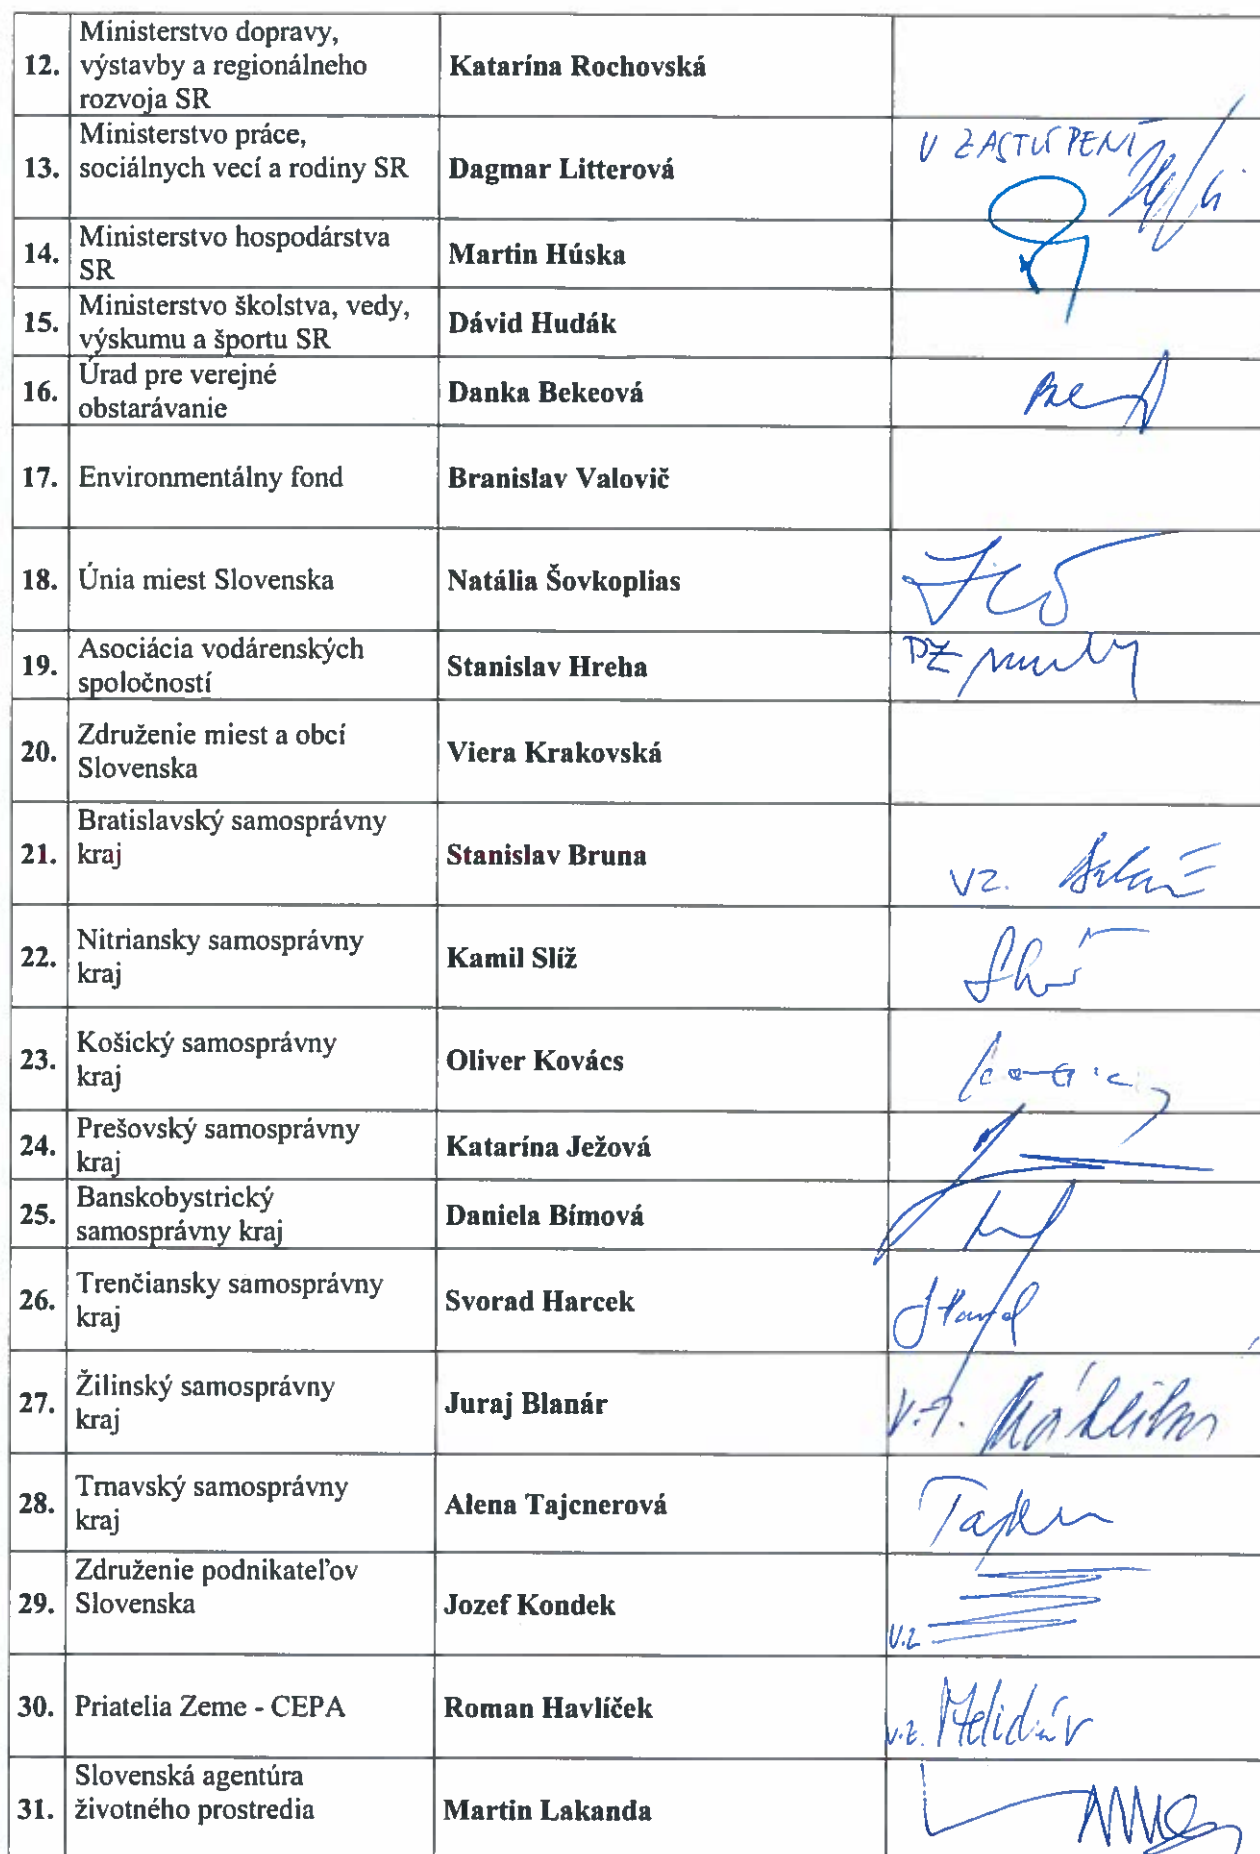 12. Ministerstvo dopravy,
výstavby a regionálneho
rozvoja SR
Katarína Rochovská
13. Ministerstvo práce,
sociálnych vecí a rodiny SR
Dagmar Litterová
V ZASTÚPENÍ
14. Ministerstvo hospodárstva
SR
Martin Húska
15. Ministerstvo školstva, vedy,
výskumu a športu SR
Dávid Hudák
16. Úrad pre verejné
obstarávanie
Danka Bekeová
17. Environmentálny fond
Branislav Valovič
18. Únia miest Slovenska
Natália Šovkoplias
19. Asociácia vodárenských
spoločností
Stanislav Hreha
PZ
20. Združenie miest a obcí
Slovenska
Viera Krakovská
21. Bratislavský samosprávny
kraj
Stanislav Bruna
VZ.
22. Nitriansky samosprávny
kraj
Kamil Slíž
23. Košický samosprávny
kraj
Oliver Kovács
24. Prešovský samosprávny
kraj
Katarína Ježová
25. Banskobystrický
samosprávny kraj
Daniela Bímová
26. Trenčiansky samosprávny
kraj
Svorad Harcek
27. Žilinský samosprávny
kraj
Juraj Blanár
28. Trnavský samosprávny
kraj
Alena Tajcnerová
29. Združenie podnikateľov
Slovenska
Jozef Kondek
v.z
30. Priatelia Zeme - CEPA
Roman Havlíček
v.z.
31. Slovenská agentúra
životného prostredia
Martin Lakanda